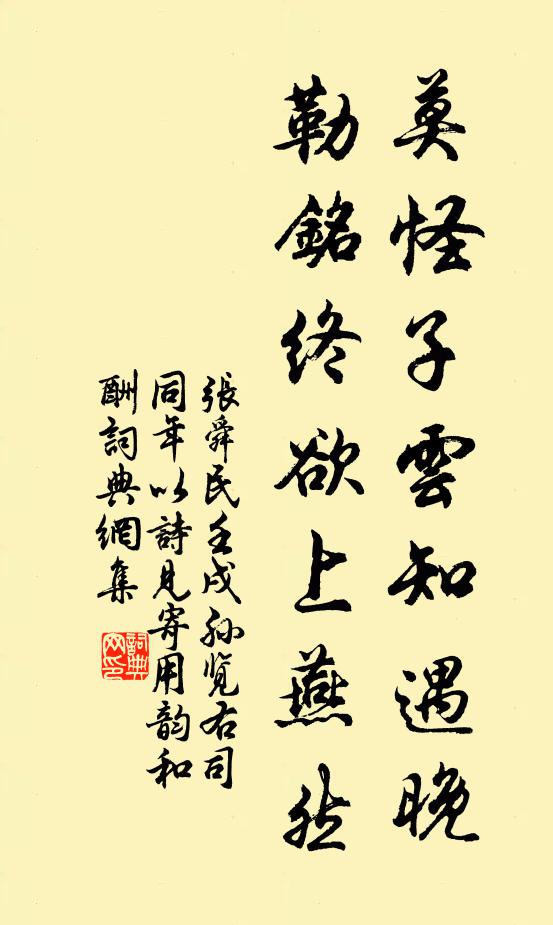 莫怪子雲知遇晚
勒銘終欲上燕然
張舜民壬戌孫覽右司
同年以詩見寄用韵和
酬詞典網集
詞典網印